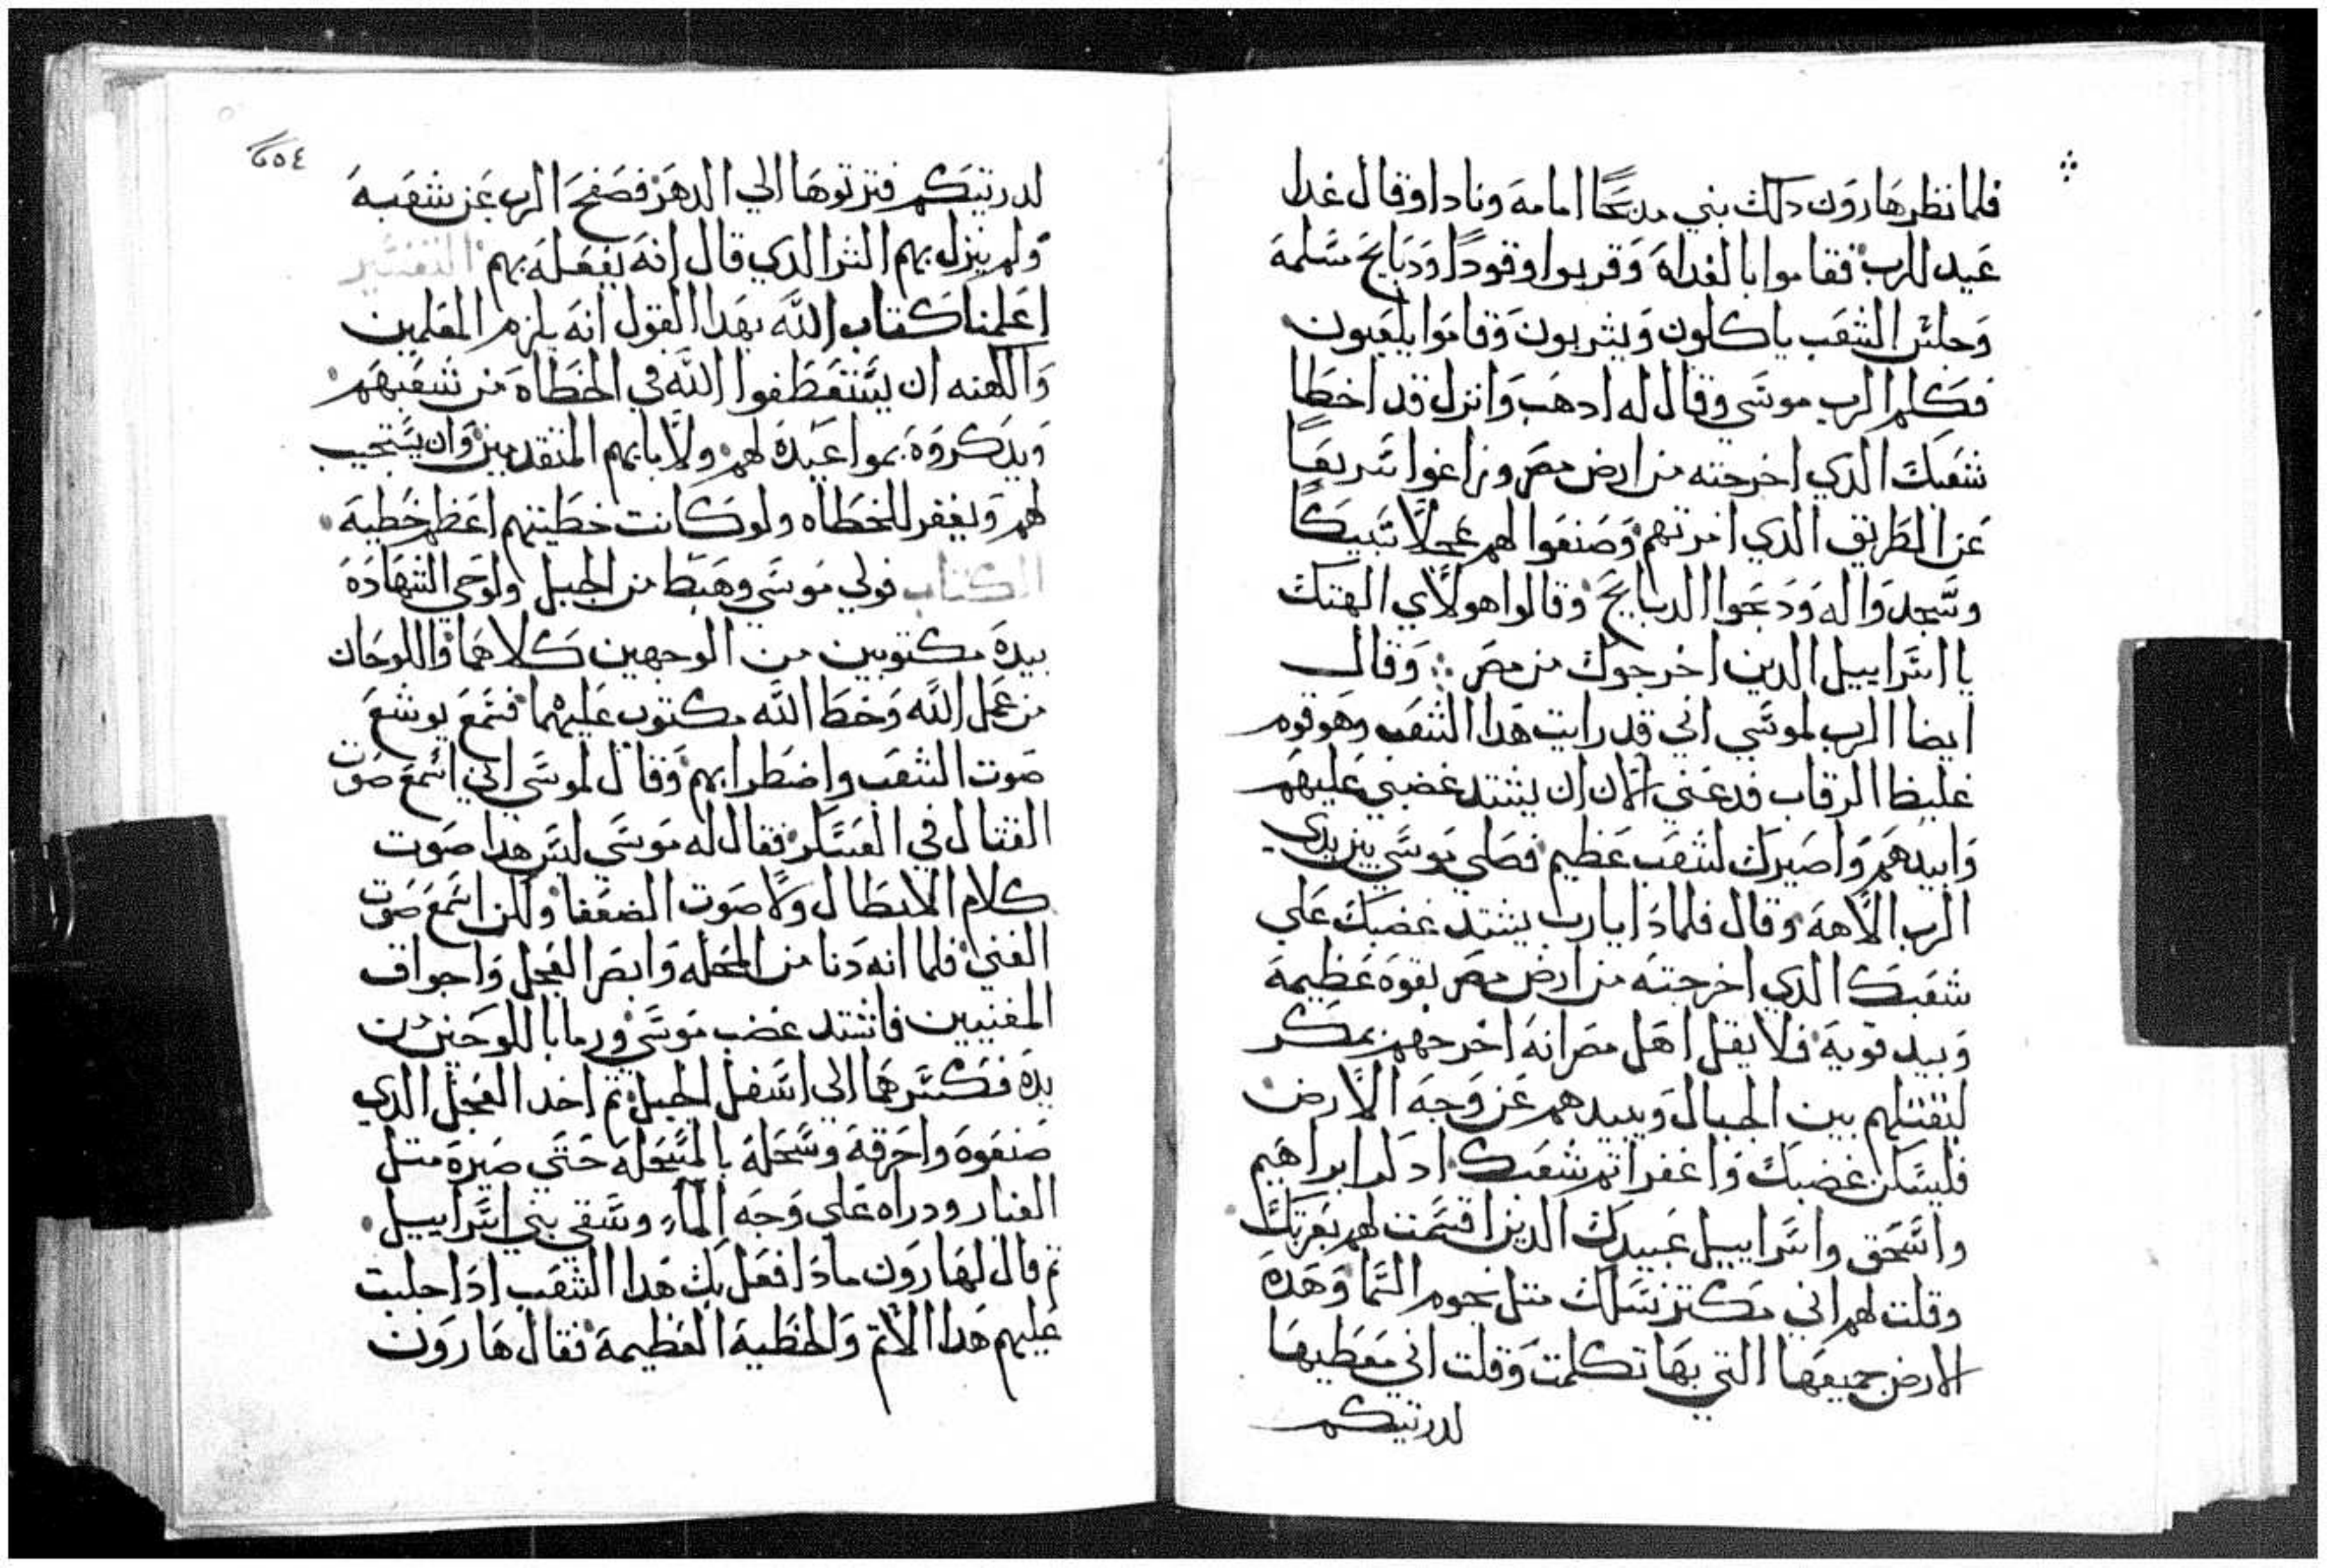 فلما نظر هارون دلك بني مدبحًا امامه ونادا وقال غدا
عيد للرب فقاموا بالغداه وقربوا وقودًا ودبايح سلمة
وجلس الشعب ياكلون ويشربون وقاموا يلعبون
فكلم الرب موسي وقال له ادهب وانزل قد اخطا
شعبك الدي اخرجته من ارض مصر وزاغوا سريعًا
عن الطريق الدي امرتهم وصنعوا لهم عجلًا سبيكًا
وسجدوا له ودبحوا الدبايح وقالوا هولاي الهتك
يا اسراييل الدين اخرجوك من مصر وقال
ايضا الرب لموسي اني قد رايت هدا الشعب وهو قوم
غليظا الرقاب فدعني الان ان يشتد غضبي عليهم
وابيدهم واصيرك لشعب عظيم فصلي موسي بين يدي
الرب الاهه وقال فلمادا يارب يشتد غضبك علي
شعبك الدي اخرجته من ارض مصر بقوه عظيمة
وبيد قوية فلا يقل اهل مصر انه اخرجهم بمكر
ليقتلهم بين الجبال ويبيدهم عن وجه الارض
فليسكن غضبك واغفر اثم شعبك ادكر ابراهيم
واسحق واسراييل عبيدك الدين اقسمت لهم بعزتك
وقلت لهم اني مكتر نسلك متل نجوم السما وهده
الارض جميعها التي بها تكلمت وقلت اني معطيها
لدريتكم
٢٥٤
لدريتكم فترتوها الي الدهر فصفح الرب عن شعبه
ولم ينزل بهم الشر الدي قال انه يفعله بهم التفسير
اعلمنا كتاب الله بهدا القول انه يلزم المعلمين
والكهنه ان يستعطفوا الله في الخطاه من شعبهم
ويدكروه بمواعيده لهم ولابايهم المتقدمين وان يستجيب
لهم ويغفر للخطاه ولو كانت خطيتهم اعظم خطية
الكتاب فولي موسي وهبط من الجبل ولوحي الشهاده
بيده مكتوبين من الوجهين كلاهما واللوحان
من عمل الله وخط الله مكتوب عليهما فسمع يوشع
صوت الشعب واضطرابهم وقال لموسي اني اسمع صوت
القتال في العسكر فقال له موسي ليس هدا صوت
كلام الابطال ولا صوت الضعفا ولكن اسمع صوت
الغني فلما انه دنا من المحله وابصر العجل واجواق
المغنيين فاشتد غضب موسي ورما باللوحين من
يده فكسرهما الي اسفل الجبل ثم اخد العجل الدي
صنعوه واحرقه وسحله بالمسحله حتي صيره متل
الغبار ودراه علي وجه الماء وسقي بني اسراييل
ثم قال لهارون مادا فعل بك هدا الشعب ادا جلبت
عليهم هدا الاثم والخطية العظيمة فقال هارون